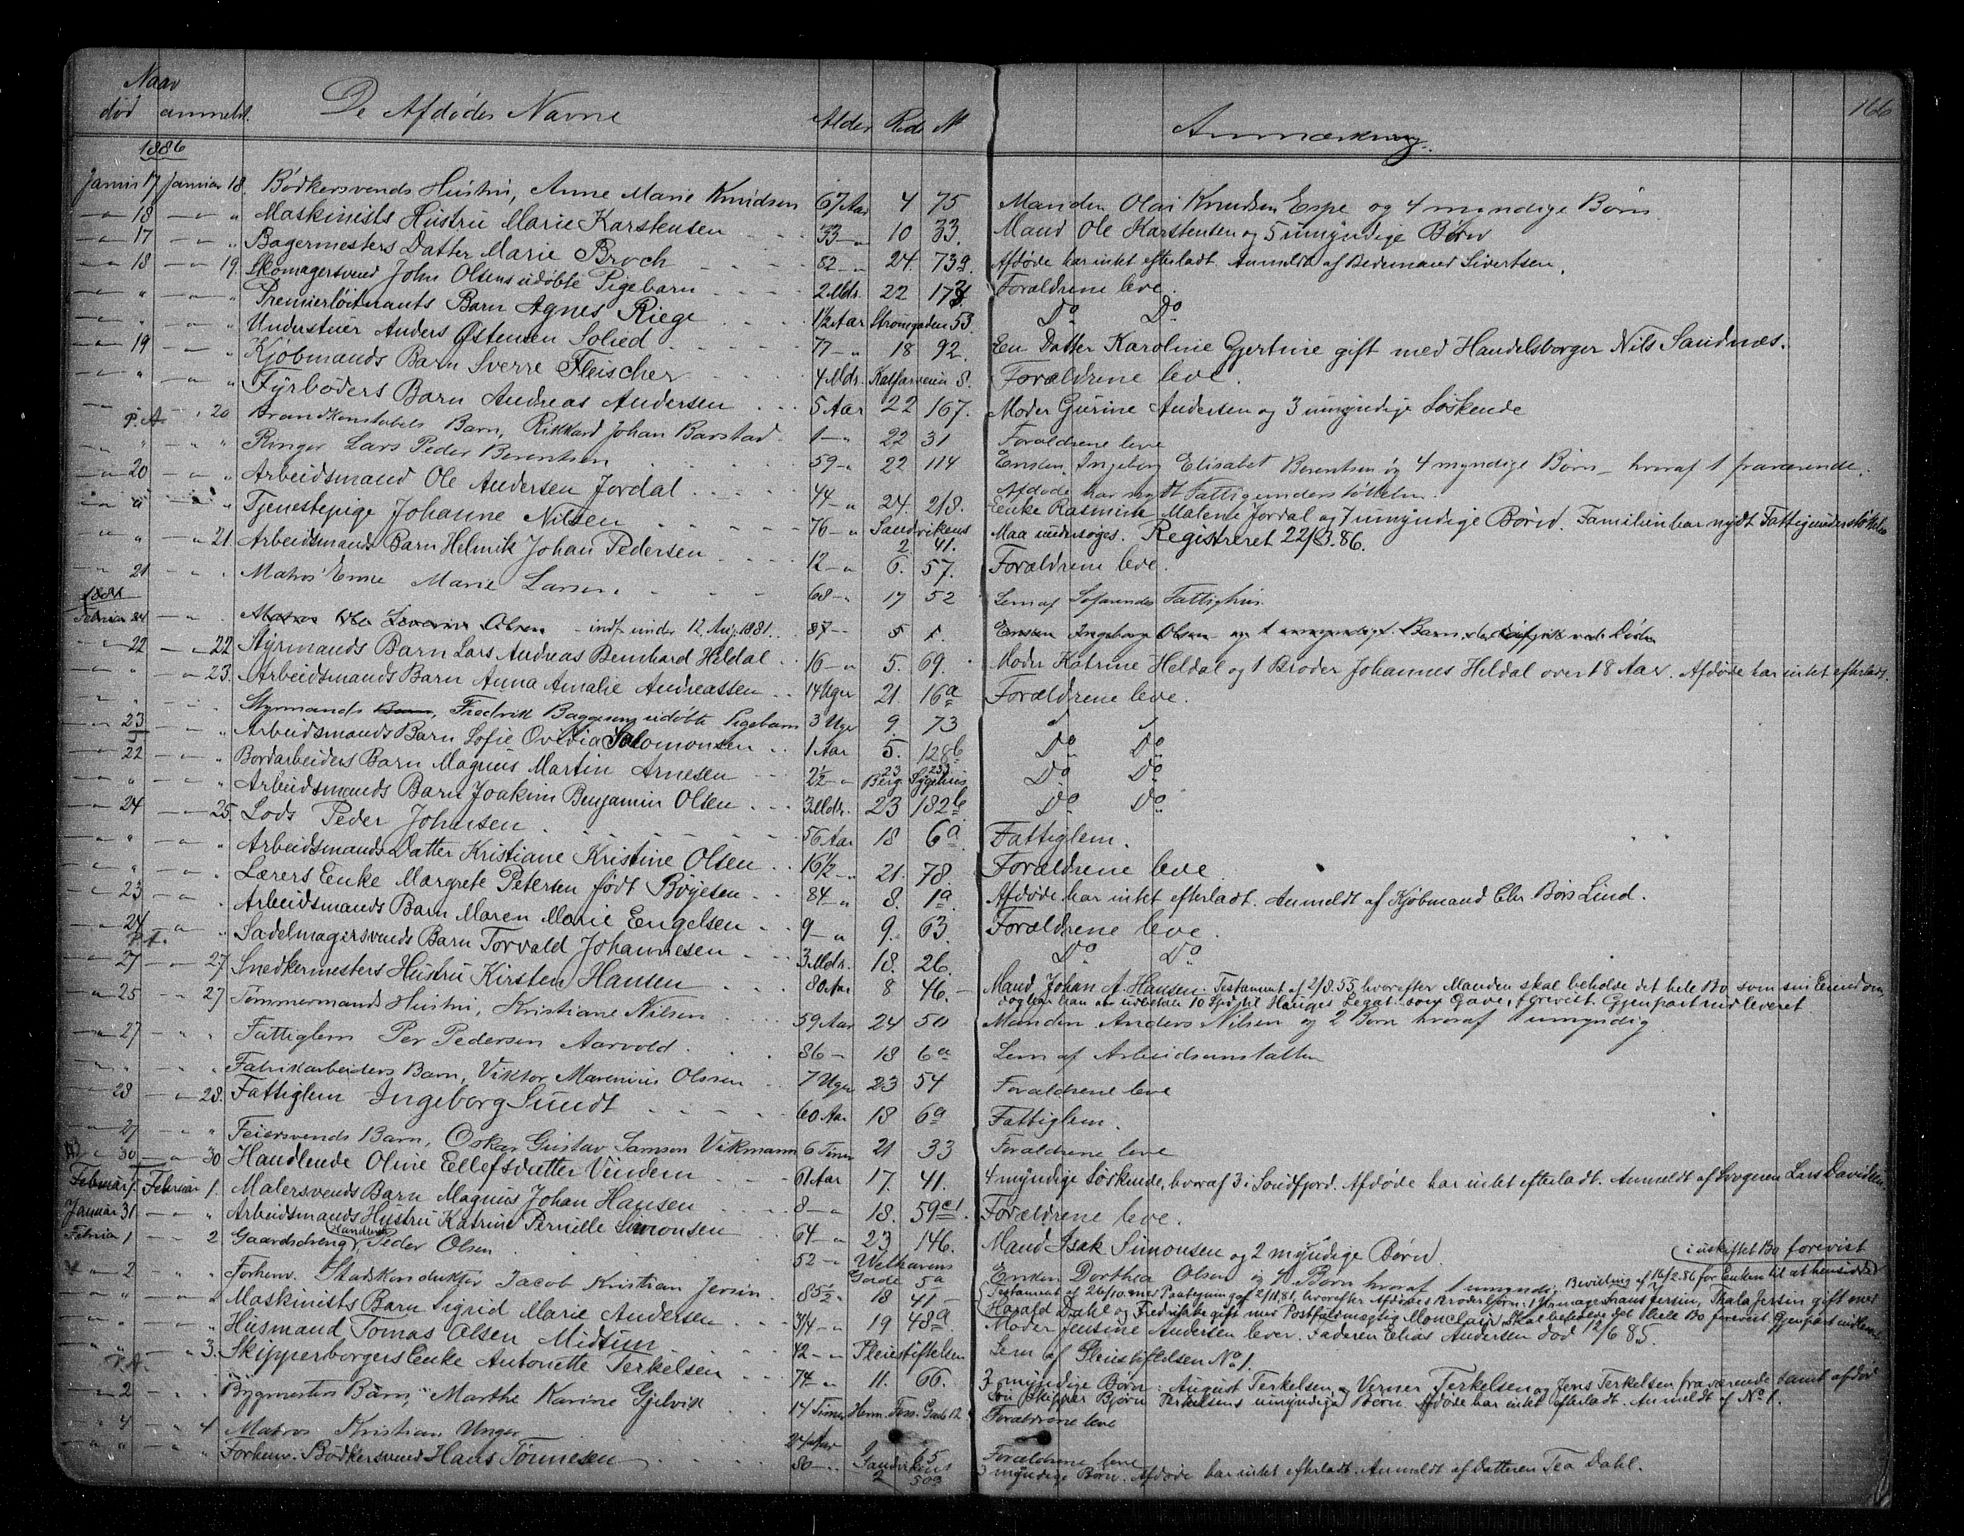 Naar
død anmeldt. De Afdødes Navne Alder Rode № Anmærkning. 166
1886
Januar 17 Januar 18. Bødkersvends Hustru, Anne Marie Knudsen 67 Aar 4 75 Manden Olai Knudsen Espe og 4 myndige Børn.
" 18 " " Maskinists Hustru Marie Karstensen 33 " 10 33. Mand Ole Karstensen og 5 umyndige Børn
" 17 " Bagermesters Datter Marie Broch 82 " 24. 73a. Afdøde har intet efterladt. Anmeldt af Bedemand Sivertsen.
" 18 " 19. Skomagersvend John Olsens udøbte Pigebarn 2 Mdr. 22 Forældrene leve.
" " " Premierløitnants Barn Agnes Riege 1½ Aar Strangaden 53. Do Do
" " " Anders Østensen Solied 77 " 18 92. En Datter Karoline Gjertine gift med Handelsborger Nils Sandnæs.
" 19 " " Kjøbmands Barn Sverre Fleischer 4 Mdr. Kalfarveien 8. Forældrene leve.
" " " Fyrbøders Barn Andreas Andersen 5 Aar 22 167. Moder Gurine Andersen og 3 umyndige Søskende
P. A. " 20 Brandkonstabels Barn, Rikkard Johan Barstad 1 " 22 31 Forældrene leve
" " " Ringer Lars Peder Berentsen 59 " 22 114 Enken, Ingeborg Elisabet Berentsen og 4 myndige Børn - hvoraf 1 fraværende.
Afdøde har nydt Fattigunderstøttelse.
" 20 " " Arbeidsmand Ole Andersen Jordal 44 " 24. 218. Enke Rasmine Malene Jordal og 7 umyndige Børn. Familien har nydt Fattigunderstøttelse
" " " Tjenestepige Johanne Nilsen 76 " Sandvikens 2 41. Maa undersøges. Registreret 22/3.86.
" " " 21. Arbeidsmands Barn Helmik Johan Pedersen 12 " 6. 57. Forældrene leve.
" 21 " Matros Enke Marie Larsen 68 " 17 52 Lem af Søfarendes Fattighus
1881
Februar " Matros Ole Severin Olsen - indf. under 12 Aug. 1881. 87 " 5 Enken Ingeborg Olsen og 1 umyndigt Barn
" 22 " 22 Styrmands Barn Lars Andreas Bernhard Heldal 16 " 5. 69. Moder Katrine Heldal og 1 Broder Johannes Heldal over 18 Aar. Afdøde har intet efterladt.
" " 23. Arbeidsmands Barn Anna Amalie Andreassen 14 Uger 21 16a Forældrene leve.
" " " Styrmands Barn, Fredrik Baggesens udøbte Pigebarn 3 Uger 9. 73 " "
" 23 " Arbeidsmands Barn Sofie Ovidia Salomonsen 1 Aar 5. 128b Do Do
" 22 " Bordarbeiders Barn Magnus Martin Arnesen Berg. Sygehus Do Do
" " " Arbeidsmands Barn Joakim Benjamin Olsen 3 Mdr. 23 182b Do Do
" 24 " 25. Lods Peder Johnsen 56 Aar 18 6a Fattiglem.
" " " Arbeidsmands Datter Kristiane Kristine Olsen 16½ " 21. 78. Forældrene leve.
" " " Lærers Enke Margrete Petersen født Bøjesen 84 " 8. 1a. Afdøde har intet efterladt. Anmeldt af Kjøbmand Chr Børs Lind.
" 23 " " Arbeidsmands Barn Maren Marie Engelsen 9 " 9. 63. Forældrene leve.
" 24 " Sadelmagersvends Barn Torvald Johannesen 3 Mdr. 18. 26. Do Do
" 27 " 27 Snedkermesters Hustru Kirsten Hansen 80 Aar 8 46. Mand, Johan A. Hansen. Testament af 2/8.55, hvorefter Manden skal beholde det hele Bo som sin Eiendom,
dog han at udbetale 10 Spd til Hauges Legat som Gave, forevist. Gjenpart indleveret
" 25 " 27 Tømmermands Hustru, Kristiane Nilsen 59 Aar 24 50 Manden Anders Nilsen og 2 Børn hvoraf 1 umyndig
" 27 " " Fattiglem Per Pedersen Aarvold. 86 " 18 6a Lem af Arbeidsanstalten
" " " Fabrikarbeiders Barn, Viktor Marenius Olssen 7 Uger 23 54 Forældrene leve
" 28 " 28. Fattiglem Ingeborg Sundt 60 Aar 18 6a Fattiglem.
" 27 " Feiersvends Barn, Oskar Gustav Samson Vikmann 6 Timer 21 33 Forældrene leve
" 30 " 30 Handlende Oline Ellefsdatter Vindem 61 Aar 17. 41. 4 myndige Søskende, hvoraf 3 i Søndfjord. Afdøde har intet efterladt. Anmeldt af Svogeren Lars Davidsen.
Februar 1. Februar 1. Malersvends Barn Magnus Johan Hansen 8 " 18. 59c1. Forældrene leve.
Januar 31 " " Arbeidsmands Hustru Katrine Pernille Simonsen 64 " 23 146. Mand Isak Simonsen og 2 myndige Børn.
Februar 1 " 2 Gaardsdreng, Peder Olsen 52 " Welhavens Gade 5a Enken Dorthea Olsen og 4 Børn hvoraf 1 umyndig
" 2 " " Forhenv. Stadskonduktør Jacob Kristian Jersin 85½ " 18 41 Testament af 26/10 med Paategning af 2/11.81, hvorefter Afdødes Broderbørn: Jersin, Thala Jersin gift med
Bevilling af 16/2.86 for Enken til at hensidde i uskiftet Bo forevist
Harald Dahl og Fredrikke gift med Postfuldmægtig Monclair skal beholde det hele Bo forevist. Gjenpart indlev.
" " " Maskinists Barn Sigrid Marie Andersen 3/4 " 19 48a Moder Jensine Andersen lever. Faderen Elias Andersen død 12/6 85.
" " " Husmand Tomas Olsen Midtun 42 " Pleiestiftelsen Lem af Pleiestiftelsen No 1.
" " " 3. Skipperborgers Enke Antonette Terkelsen 74 " 11. 66. 3 myndige Børn: August Terkelsen, Verner Terkelsen og Jens Terkelsen fraværende samt afdød
Søn Skipper Bjørn Terkelsens umyndige Børn. Afdøde har intet efterladt. Anmeldt af No 1.
P. A.
" 2 " " Bygmesters Barn, Marthe Karine Gjelvik 14 Timer Herm. Foss. Gade 12 Forældrene leve
" 4 " 4 Matros Kristian Unger 24 Aar Forældrene leve
" " " Forhenv. Bødkersvend Hans Tønnesen 80 " Sandvikens 2 50a 3 myndige Børn. Afdøde har intet efterladt. Anmeldt af Datteren Tea Dahl.